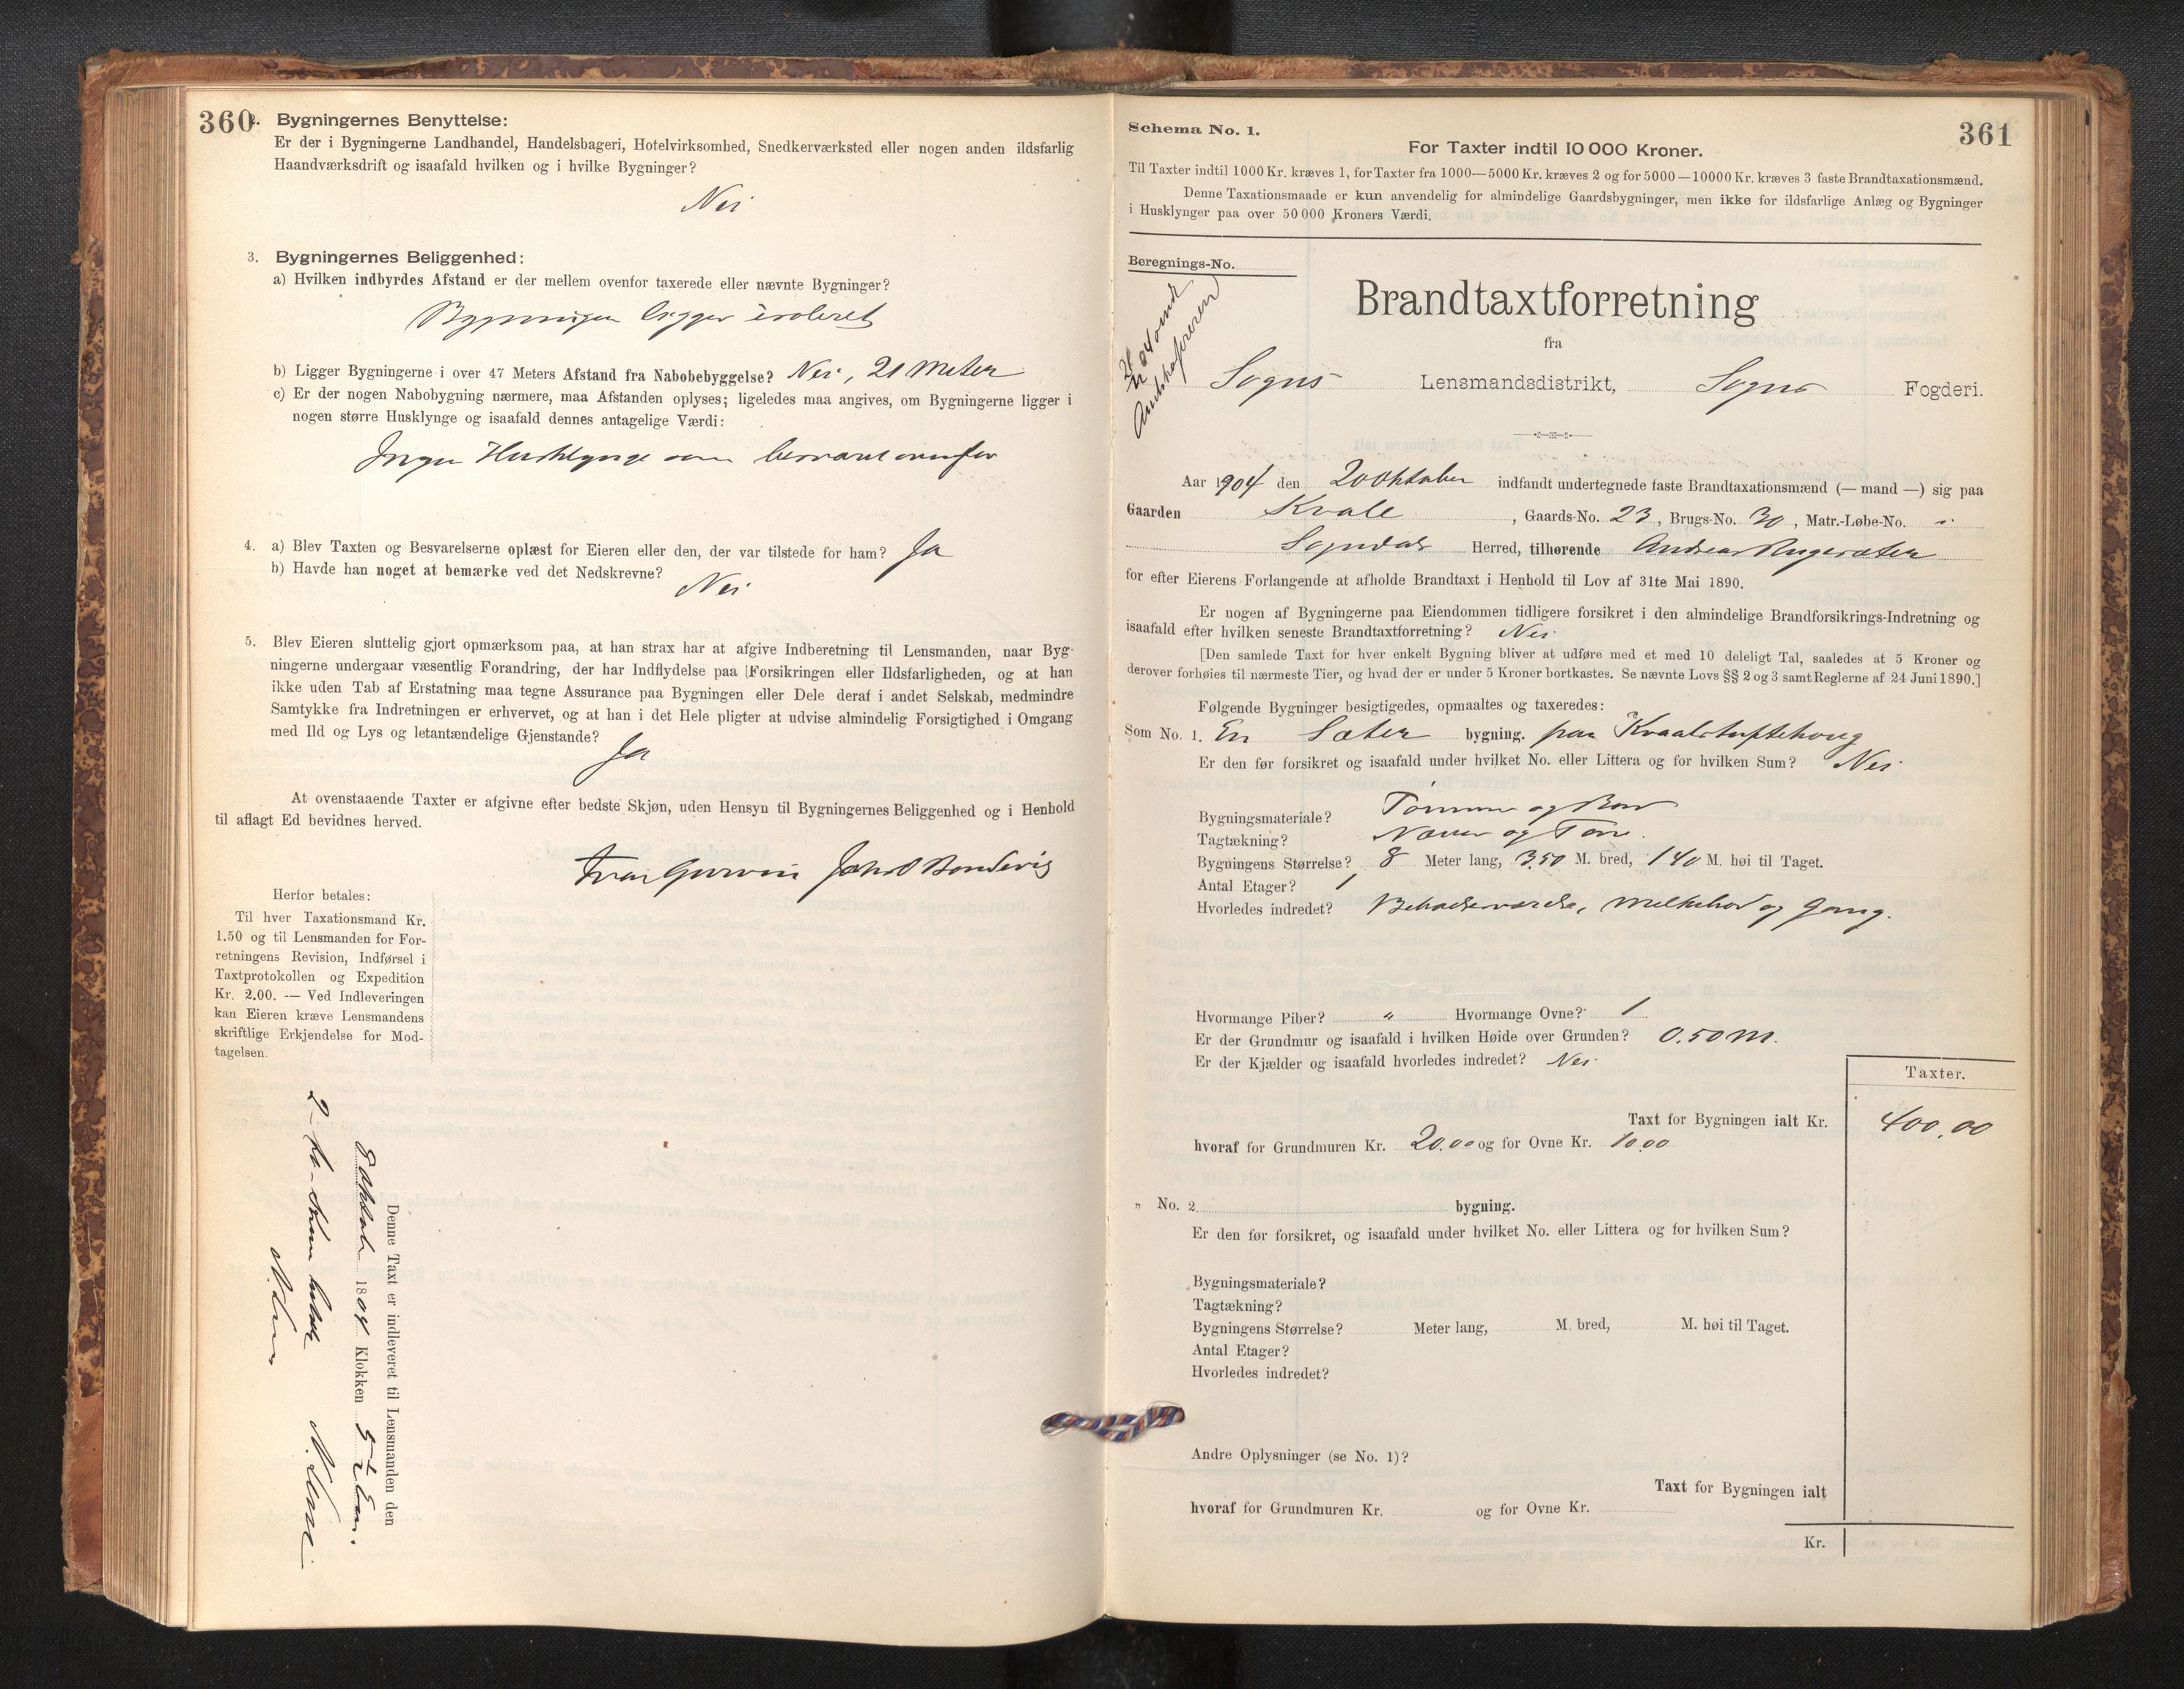 360
2. Bygningernes Benyttelse:
Er der i Bygningerne Landhandel, Handelsbageri, Hotelvirksomhed, Snedkerværksted eller nogen anden ildsfarlig
Haandværksdrift og isaafald hvilken og i hvilke Bygninger?
Nei
3. Bygningernes Beliggenhed:
a) Hvilken indbyrdes Afstand er der mellem ovenfor taxerede eller nævnte Bygninger?
Bygningen ligger isoleret
b) Ligger Bygningerne i over 47 Meters Afstand fra Nabobebyggelse? Nei, 21 Meter
c) Er der nogen Nabobygning nærmere, maa Afstanden oplyses; ligeledes maa angives, om Bygningerne ligger i
nogen større Husklynge og isaafald dennes antagelige Værdi:
Ingen Husklynge som besvaret ovenfor
4. a) Blev Taxten og Besvarelserne oplæst for Eieren eller den, der var tilstede for ham? Ja
b) Havde han noget at bemærke ved det Nedskrevne?
Nei
5. Blev Eieren sluttelig gjort opmærksom paa, at han strax har at afgive Indberetning til Lensmanden, naar Byg-
ningerne undergaar væsentlig Forandring, der har Indflydelse paa Forsikringen eller Ildsfarligheden, og at han
ikke uden Tab af Erstatning maa tegne Assurance paa Bygningen eller Dele deraf i andet Selskab, medmindre
Samtykke fra Indretningen er erhvervet, og at han i det Hele pligter at udvise almindelig Forsigtighed i Omgang
med Ild og Lys og letantændelige Gjenstande?
Ja
At ovenstaaende Taxter er afgivne efter bedste Skjøn, uden Hensyn til Bygningernes Beliggenhed og i Henhold
til aflagt Ed bevidnes herved.
Herfor betales:
Til hver Taxationsmand Kr.
1.50 og til Lensmanden for For-
retningens Revision, Indførsel i
Taxtprotokollen og Expedition
Kr. 2.00. — Ved Indleveringen
kan Eieren kræve Lensmandens
skriftlige Erkjendelse for Mod-
tagelsen.
Denne Taxt er indleveret til Lensmanden den
1804 Klokken
361
Schema No. 1.
For Taxter indtil 10 000 Kroner.
Til Taxter indtil 1000 Kr. kræves 1, for Taxter fra 1000—5000 Kr. kræves 2 og for 5000—10000 Kr. kræves 3 faste Brandtaxationsmænd.
Denne Taxationsmaade er kun anvendelig for almindelige Gaardsbygninger, men ikke for ildsfarlige Anlæg og Bygninger
i Husklynger paa over 50 000 Kroners Værdi.
Beregnings-No.
Brandtaxtforretning
fra
Sogns Lensmandsdistrikt, Sogns Fogderi.
Aar 1904 den 20 Oktober indfandt undertegnede faste Brandtaxationsmænd (— mand —) sig paa
Gaarden Kvale, Gaards-No. 23, Brugs-No. 30, Matr.-Løbe-No. "
Sogndals Herred, tilhørende Andreas
for efter Eierens Forlangende at afholde Brandtaxt i Henhold til Lov af 31te Mai 1890.
Er nogen af Bygningerne paa Eiendommen tidligere forsikret i den almindelige Brandforsikrings-Indretning og
isaafald efter hvilken seneste Brandtaxtforretning? Nei
[Den samlede Taxt for hver enkelt Bygning bliver at udføre med et med 10 deleligt Tal, saaledes at 5 Kroner og
derover forhøies til nærmeste Tier, og hvad der er under 5 Kroner bortkastes. Se nævnte Lovs §§ 2 og 3 samt Reglerne af 24 Juni 1890.]
Følgende Bygninger besigtigedes, opmaaltes og taxeredes:
Som No. 1. En Sæter bygning. paa Kvaalstuftehoug
Er den før forsikret og isaafald under hvilket No. eller Littera og for hvilken Sum? Nei
Bygningsmateriale? Tømmer og Bord
Tagtækning? Næver og Torv.
Bygningens Størrelse? 8 Meter lang, 3.50 M. bred, 1.40 M. høi til Taget.
Antal Etager? 1
Hvorledes indret? Beboelsesværelse, Melkebod og Gang.
Hvormange Piber? " Hvormange Ovne? 1
Er der Grundmur og isaafald i hvilken Høide over Grunden? 0.50 M.
Er der Kjælder og isaafald hvorledes indredet? Nei
Taxter.
Taxt for Bygningen ialt Kr. 400,00
hvoraf for Grundmuren Kr. 20.00 og for Ovne Kr. 10.00
" No. 2. bygning.
Er den før forsikret, og isaafald under hvilket No. eller Littera og for hvilken Sum?
Bygningsmateriale?
Tagtækning?
Bygningens Størrelse? Meter lang, M. bred, M. høi til Taget.
Antal Etager?
Hvorledes indredet?
Andre Oplysninger (se No. 1)?
Taxt for Bygningen ialt
hvoraf for Grundmuren Kr. og for Ovne Kr.
Kr.